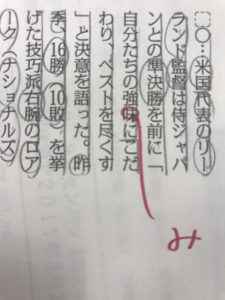 〇…米国代表のリー
ランド監督は侍ジャパ
ンとの準決勝を前に「
自分たちの強味にこだ
わり、ベストを尽くす
」と決意を語った。昨
季、16勝10敗 を挙
げた技巧派右腕のロア
ーク(ナショナルズ)
み